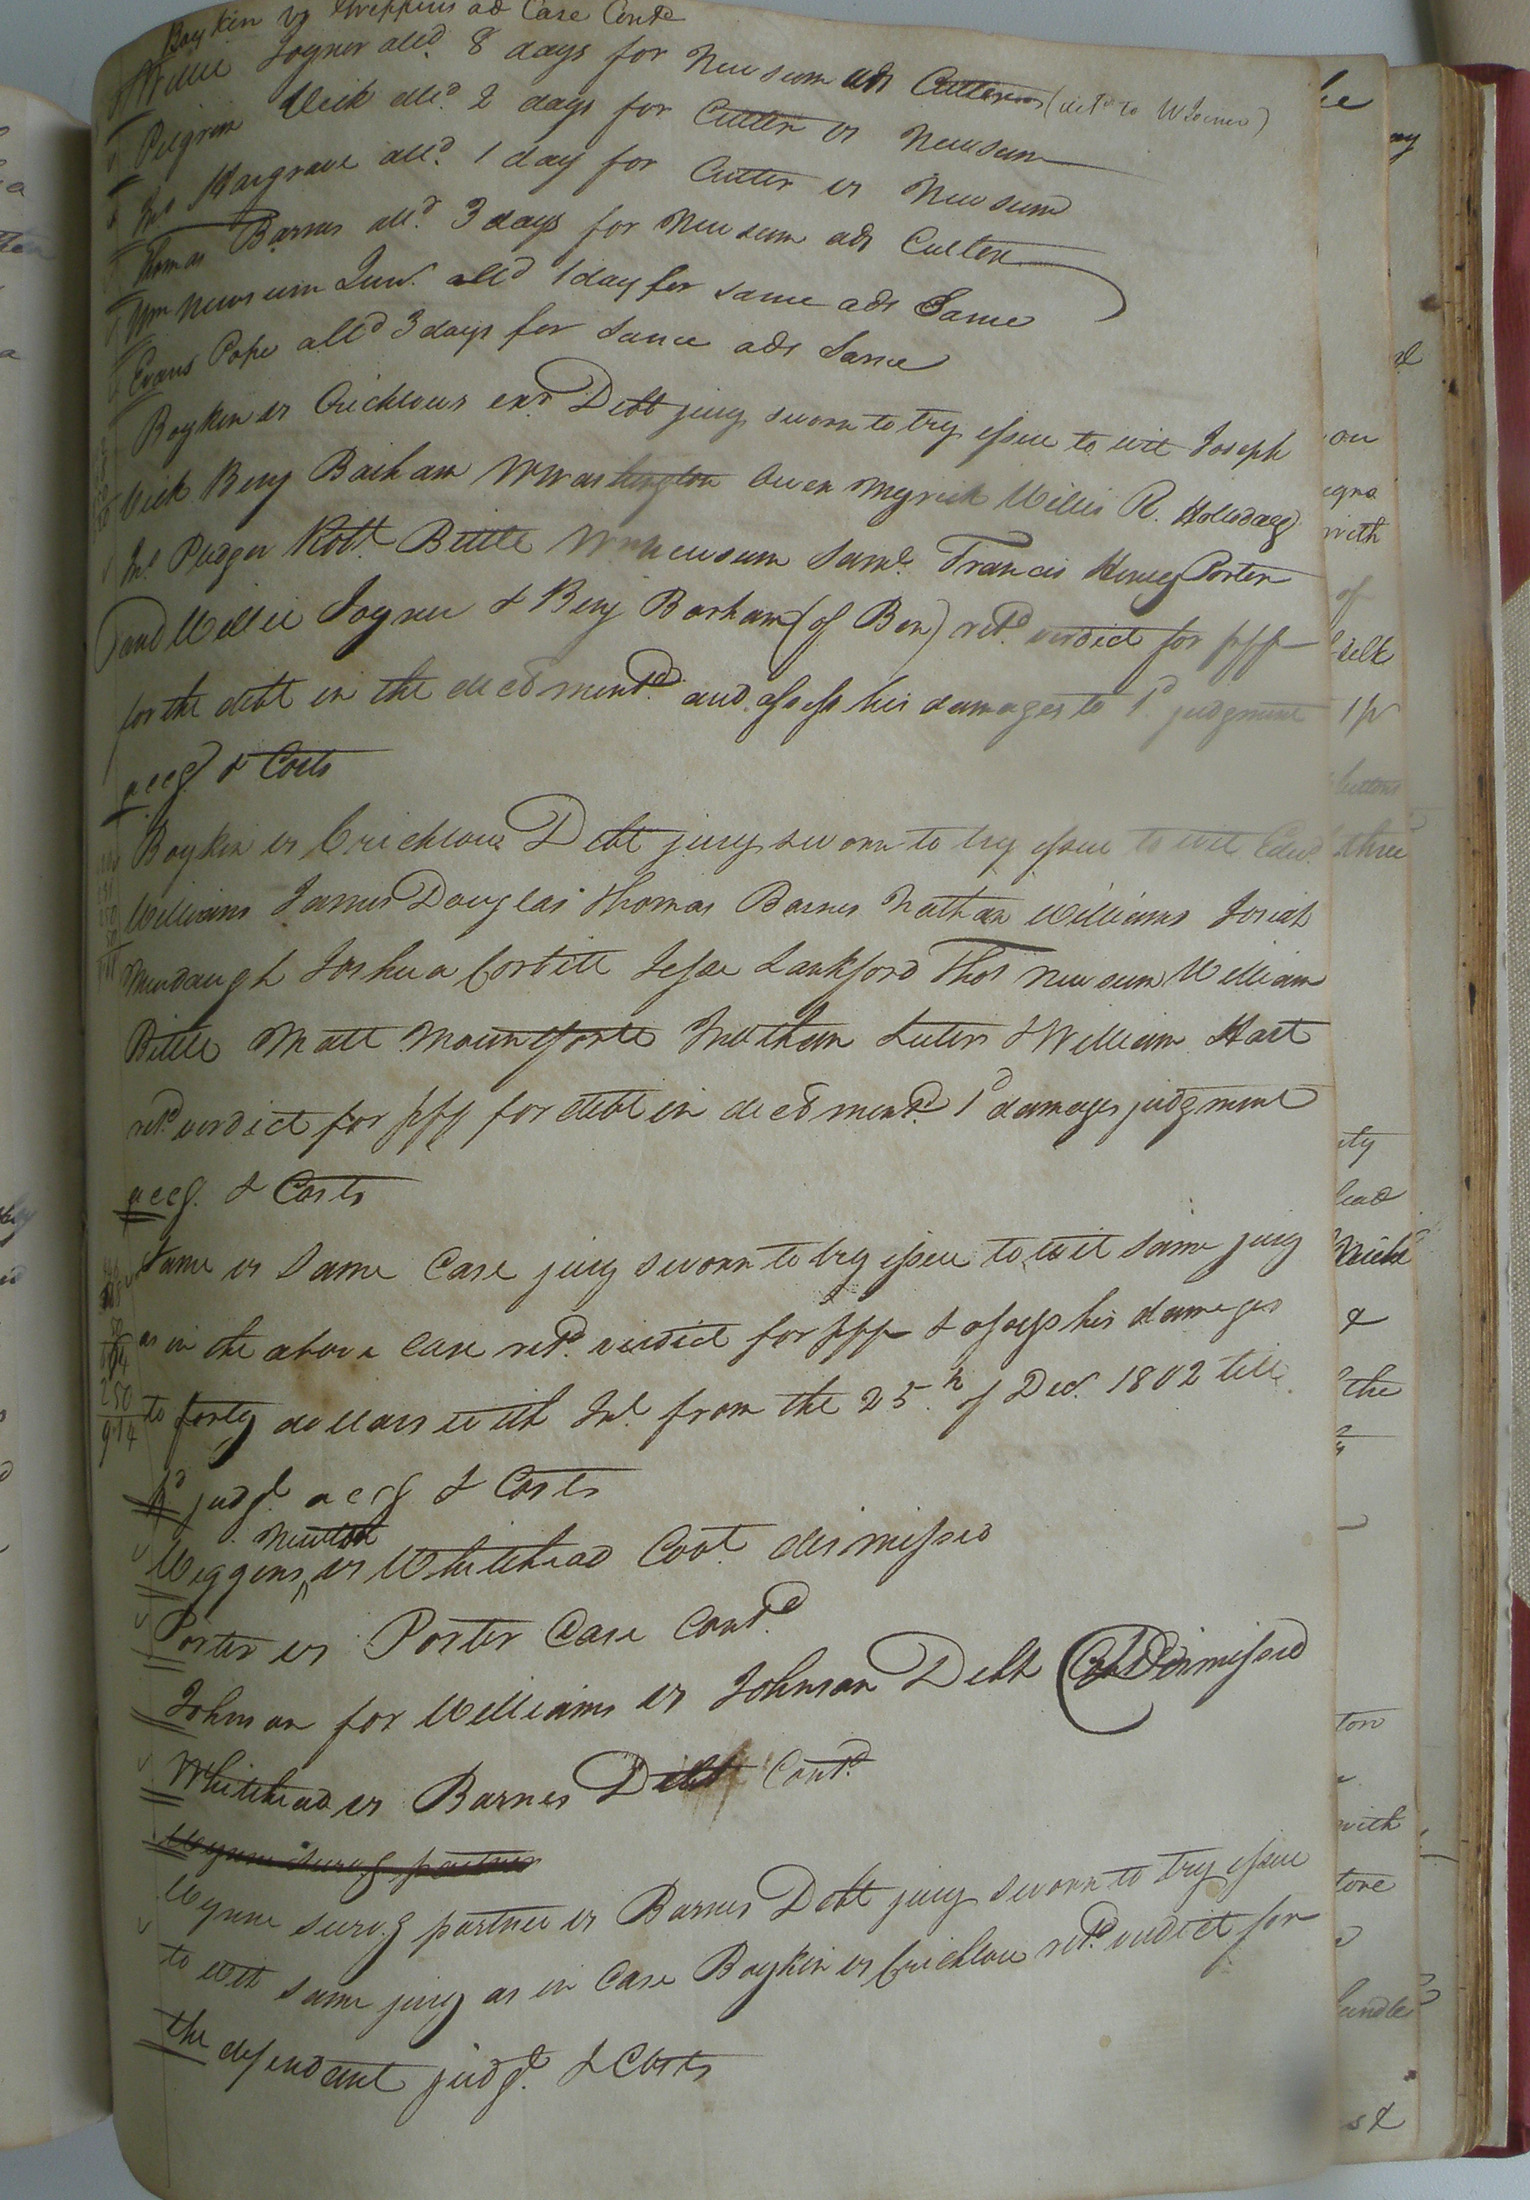 Boykin vs ad Case Contd
Willie Joyner alld. 8 days for Newsum ads (detd to W Joiner)
Pilgrim Vick alld. 2 days for Cutler vs Newsum
Jno Hargrave alld. 1 day for Cutler vs Newsum
Thomas Barnes alld. 3 days for Newsum ads Cutler
Wm Newsum Junr. alld 1 day for same ads Same
Evans Pope alld 3 days for same ads Same
Boykin vs Crichlows exr Debt jury sworn to try issue to wit Joseph
Vick Benj Barham W Washington Owen Myrick Willis R. Holladay
Jno. Pledger Robt. Bittle Wm Newsum Saml. Francis Henry Porter
and Willie Joyner & Benj Barham (of Ben) retd. verdict for pff
for the debt in the decl mentd. and assess his damages to 1d. judgment
accg. & Costs
Boykin vs Crichlow Debt jury sworn to try issue to wit Edwd
Williams James Douglas Thomas Barnes Nathan Williams Josiah
Murdaugh Joshua Corbitt Jesse Lankford Thos Newsum William
Bittle Matt Mountfortt Jonathan Luter & William Hart
retd. verdict for pff for debt in decl mentd. 1d damages judgment
accg. & Costs
Same vs Same Case jury sworn to try issue to wit same jury
as in the above case retd. verdict for pff & assess his damages
250 to forty dollars with Int. from the 25.h of Decr. 1802 till
914
pd. judgt. accg & Costs
Newton
Wiggins vs Whitehead Covt. dismissed
Porter vs Porter Case Contd.
Johnson for Williams vs Johnson Debt Dismissed
Whitehead vs Barnes Debt Contd.
Wynne survg partner
Wynne survg partner vs Barnes Debt jury sworn to try issue
to wit same jury as in Case Boykin vs Crichlow retd. verdict for
the defendant judgt. & Costs